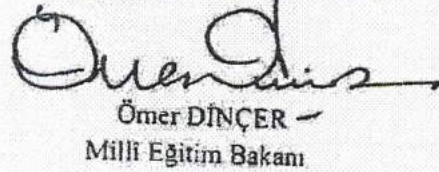 Ömer DİNÇER
Millî Eğitim Bakanı